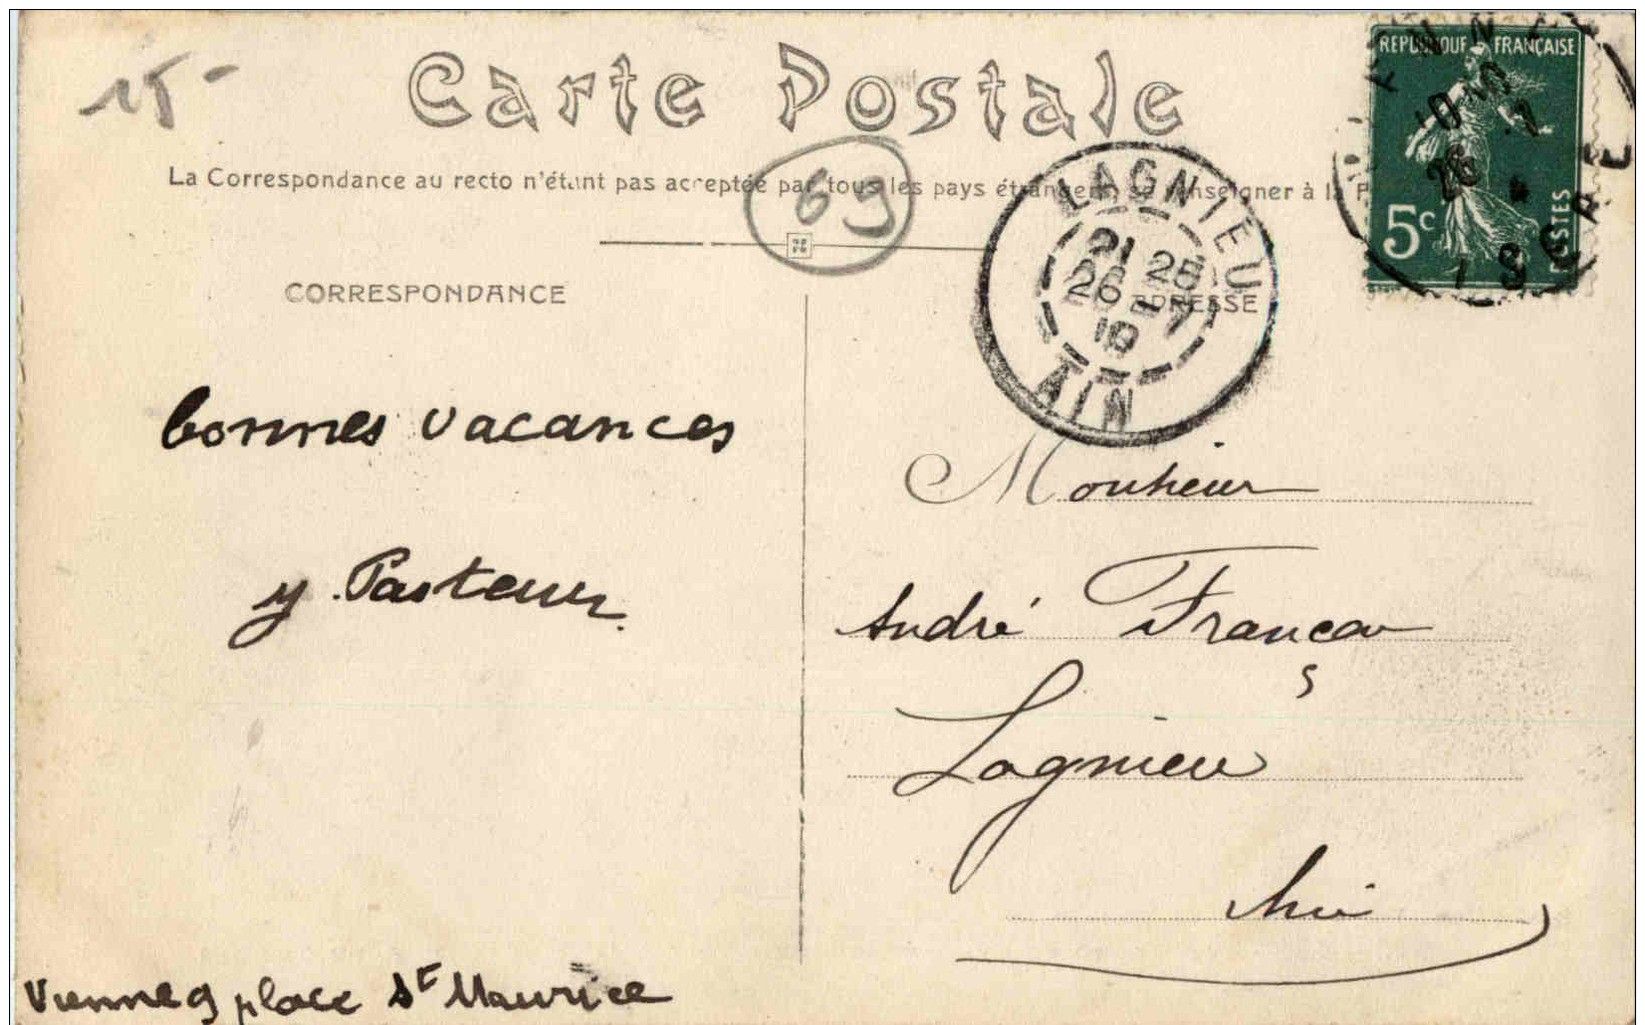 15-
Carte Postale
REPUBLIQUE FRANÇAISE
5c
POSTES
La Correspondance au recto n'étant pas acceptée par tous les pays étrangers, se renseigner à la
69
LAGNIEU
21 25
26 -7
10
AIN
ISERE
CORRESPONDANCE
ADRESSE
bonnes vacances
y. Pasteur.
Monsieur
André Françon
Lagnieu
Ain
Vienne 9 place St Maurice